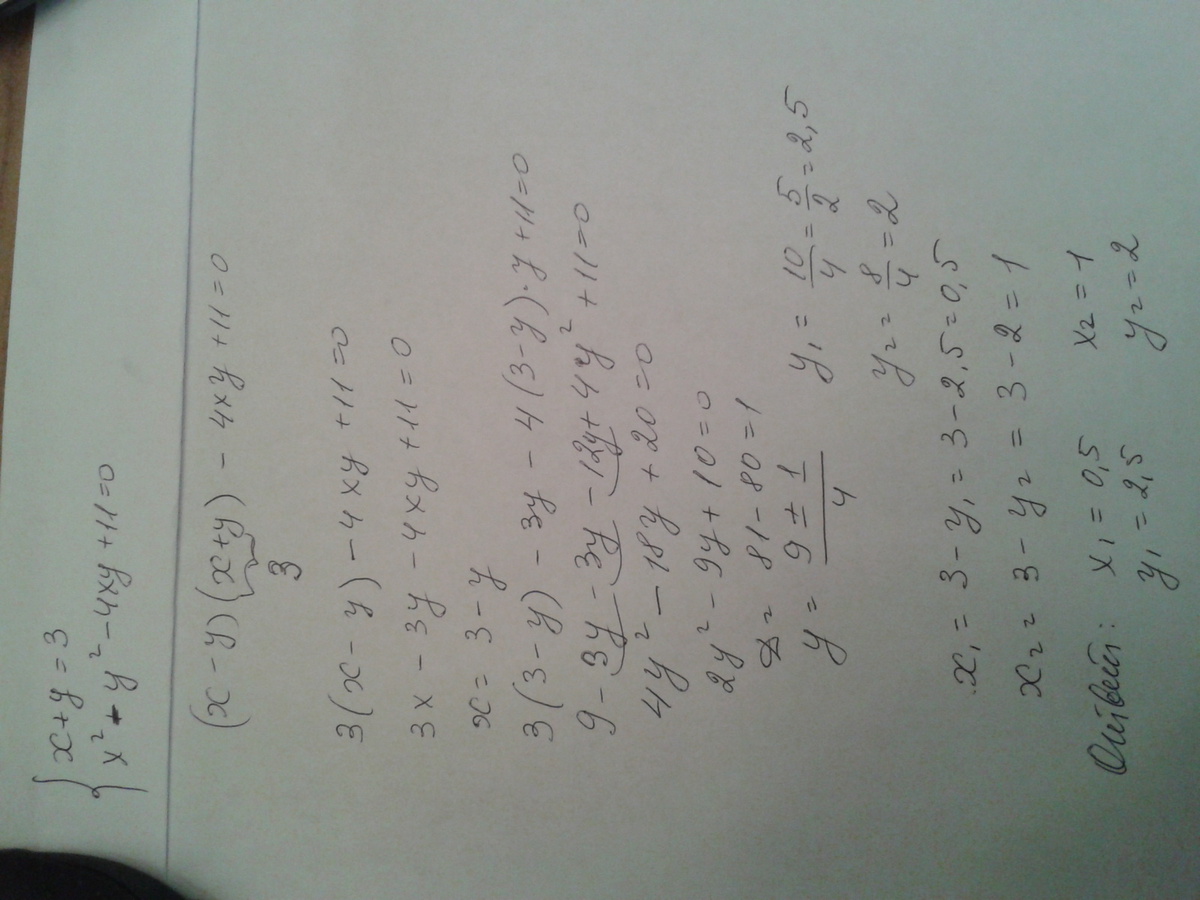 { x+y=3
x² - y² - 4xy + 11 = 0
(x-y)(x+y) - 4xy + 11 = 0
3
3(x-y) - 4xy + 11 = 0
3x - 3y - 4xy + 11 = 0
x = 3 - y
3(3-y) - 3y - 4(3-y)·y + 11 = 0
9 - 3y - 3y - 12y + 4y² + 11 = 0
4y² - 18y + 20 = 0
2y² - 9y + 10 = 0
D = 81 - 80 = 1
y = (9 ± 1)/4 y₁ = 10/4 = 5/2 = 2,5
y₂ = 8/4 = 2
x₁ = 3 - y₁ = 3 - 2,5 = 0,5
x₂ = 3 - y₂ = 3 - 2 = 1
Ответ: x₁ = 0,5 x₂ = 1
y₁ = 2,5 y₂ = 2